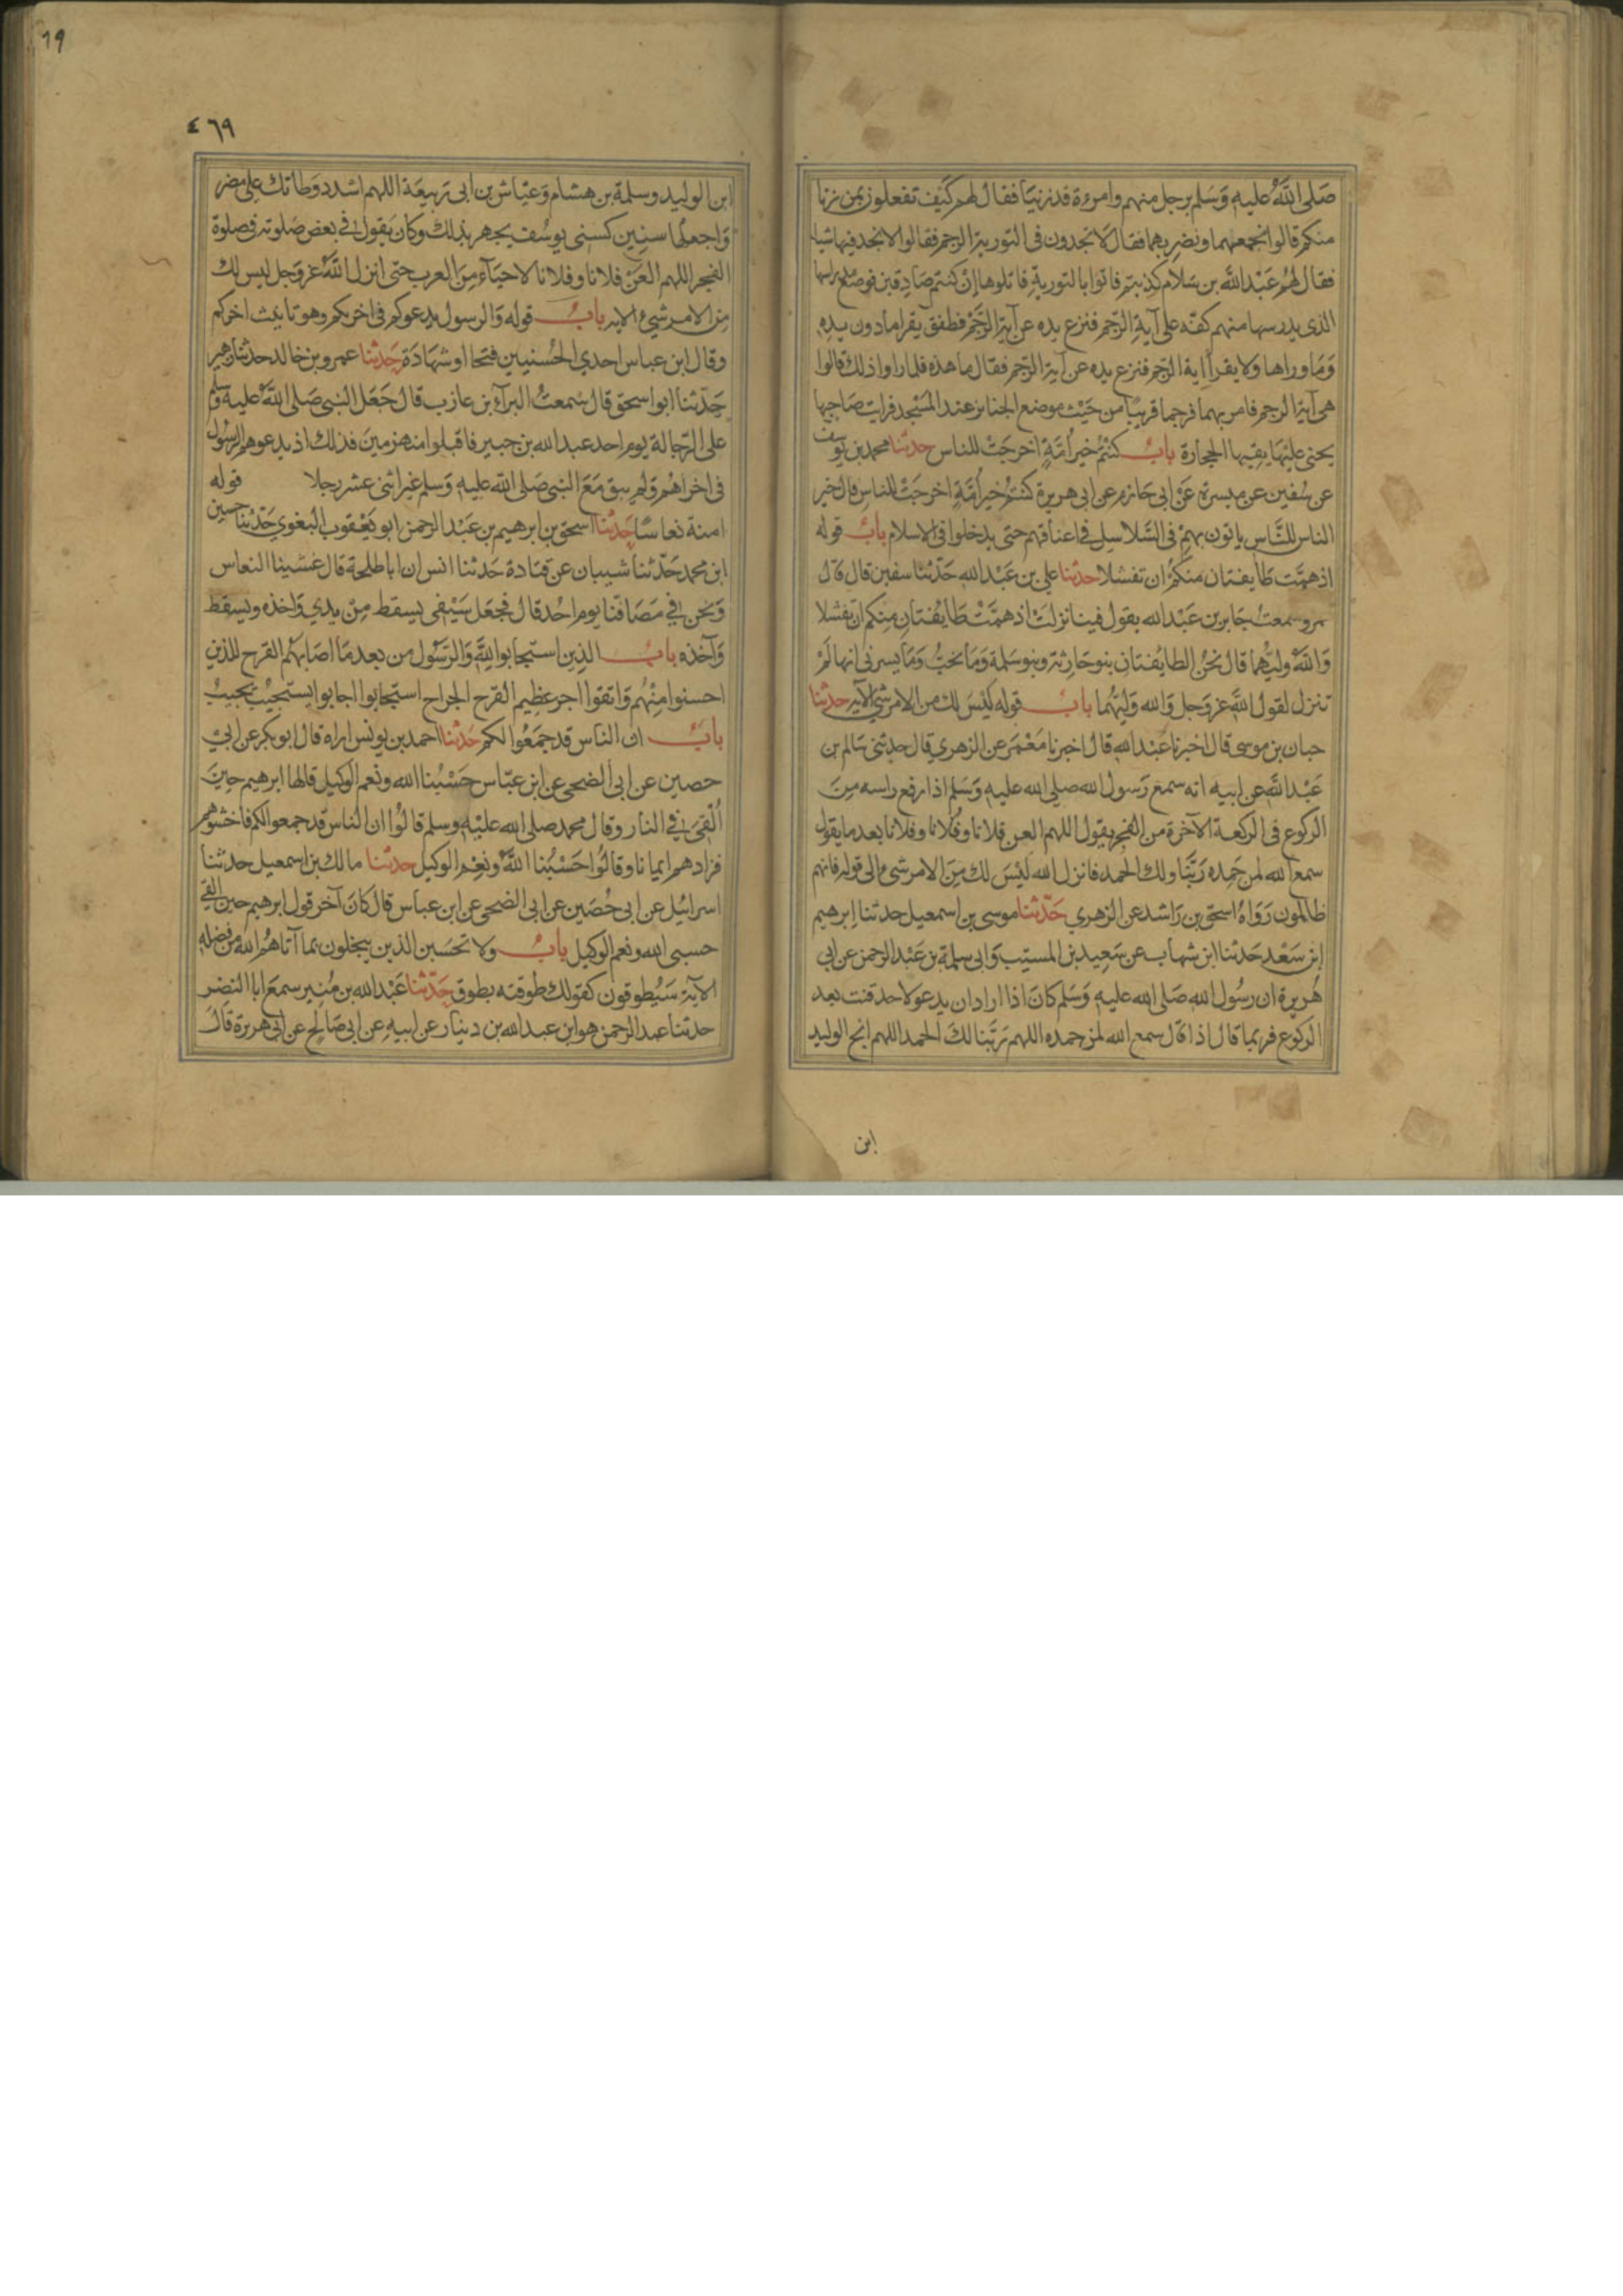 صلى الله عليه وسلم برجل منهم وامرءة قد زنيا فقال لهم كيف تفعلون بمن زنا
منكم قالوا نحممهما ونضربهما فقال لا تجدون في التورية الرجم فقالوا لا نجد فيها شيا
فقال لهم عبد الله بن سلام كذبتم فاتوا بالتورية فاتلوها إن كنتم صادقين فوضع مدراسها
الذي يدرسها منهم كفه على آية الرجم فنزع يده عن آية الرجم فطفق يقرا ما دون يده
وما وراها ولا يقرأ اية الرجم فنزع يده عن آية الرجم فقال ما هذه فلما راوا ذلك قالوا
هي آية الرجم فامر بهما فرجما قريبا من حيث موضع الجنايز عند المسجد فرايت صاحبها
يحني عليها يقيها الحجارة باب كنتم خير أمة اخرجت للناس حدثنا محمد بن يوسف
عن سفين عن ميسرة عن ابي حازم عن ابي هريرة كنتم خير أمة اخرجت للناس قال خير
الناس للناس ياتون بهم في السلاسل في اعناقهم حتى يدخلوا في الاسلام باب قوله
اذ همت طايفتان منكم ان تفشلا حدثنا علي بن عبد الله حدثنا سفين قال قال
عمرو سمعت جابر بن عبد الله يقول فينا نزلت اذ همت طايفتان منكم ان تفشلا
والله وليهما قال نحن الطايفتان بنو حارثة وبنو سلمة وما نحب وما يسرني انها لم
تنزل لقول الله عز وجل والله وليهما باب قوله ليس لك من الامر شئ الآية حدثنا
حبان بن موسى قال اخبرنا عبد الله قال اخبرنا معمر عن الزهري قال حدثني سالم بن
عبد الله عن ابيه انه سمع رسول الله صلى الله عليه وسلم اذا رفع راسه من
الركوع في الركعة الآخرة من الفجر يقول اللهم العن فلانا وفلانا وفلانا بعد ما يقول
سمع الله لمن حمده ربنا ولك الحمد فانزل الله ليس لك من الامر شئ الى قوله فانهم
ظالمون رواه اسحق بن راشد عن الزهري حدثنا موسى بن اسمعيل حدثنا ابرهيم
ابن سعد حدثنا ابن شهاب عن سعيد بن المسيب وابي سلمة بن عبد الرحمن عن ابي
هريرة ان رسول الله صلى الله عليه وسلم كان اذا اراد ان يدعو لاحد قنت بعد
الركوع فربما قال اذا قال سمع الله لمن حمده اللهم ربنا لك الحمد اللهم انج الوليد
ابن
19
٤٦٩
ابن الوليد وسلمة بن هشام وعياش بن ابي ربيعة اللهم اشدد وطاتك على مضر
واجعلها سنين كسني يوسف يجهر بذلك وكان يقول في بعض صلوته في صلوة
الفجر اللهم العن فلانا وفلانا لاحياء من العرب حتى انزل الله عز وجل ليس لك
من الامر شئ الاية باب قوله والرسول يدعوكم في اخريكم وهو تانيث اخركم
وقال ابن عباس احدى الحسنيين فتحا او شهادة حدثنا عمرو بن خالد حدثنا زهير
حدثنا ابو اسحق قال سمعت البراء بن عازب قال جعل النبي صلى الله عليه وسلم
على الرجالة يوم احد عبد الله بن جبير فاقبلوا منهزمين فذلك اذ يدعوهم الرسول
في اخراهم ولم يبق مع النبي صلى الله عليه وسلم غير اثنى عشر رجلا قوله
امنة نعاسا حدثنا اسحق بن ابرهيم بن عبد الرحمن ابو يعقوب البغوي حدثنا حسين
ابن محمد حدثنا شيبان عن قتادة حدثنا انس ان ابا طلحة قال غشينا النعاس
ونحن في مصافنا يوم احد قال فجعل سيفي يسقط من يدي واخذه ويسقط
وآخذه باب الذين استجابوا لله والرسول من بعد ما اصابهم القرح للذين
احسنوا منهم واتقوا اجر عظيم القرح الجراح استجابوا اجابوا يستجيب يجيب
باب ان الناس قد جمعوا لكم حدثنا احمد بن يونس اراه قال ابو بكر عن ابي
حصين عن ابي الضحى عن ابن عباس حسبنا الله ونعم الوكيل قالها ابرهيم حين
ألقي في النار وقال محمد صلى الله عليه وسلم قالوا ان الناس قد جمعوا لكم فاخشوهم
فزادهم ايمانا وقالوا حسبنا الله ونعم الوكيل حدثنا مالك بن اسمعيل حدثنا
اسرائيل عن ابي حصين عن ابي الضحى عن ابن عباس قال كان آخر قول ابرهيم حين القي
حسبي الله ونعم الوكيل باب ولا تحسبن الذين يبخلون بما آتاهم الله من فضله
الآية سيطوقون كقولك طوقته بطوق حدثنا عبد الله بن منير سمع ابا النضر
حدثنا عبد الرحمن هو ابن عبد الله بن دينار عن ابيه عن ابي صالح عن ابي هريرة قال